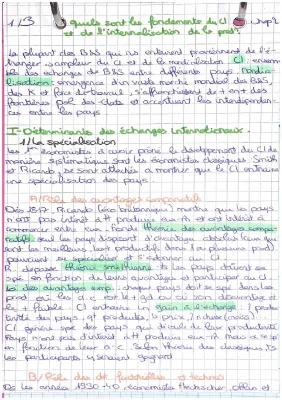 1/3 quels sont les fondements du CI
et de l'internalisation de la prod°.
La plupart des B&S qui ns entourent proviennent de l'é-
change. ampleur du CI et de la mondialisation. CI: ensem
ble des échanges de B&S entre différents pays. Mondia-
lisation: émergence d'un vaste marché mondial des B&S
des K et force de travail, s'affranchissent de + en + des
frontières pol des états et accentuent les interdépendan-
ces entre les pays
I- Déterminants des échanges internationaux.
1/ La spécialisation
Les 1ers économistes à avoir prôné le développement du CI de
manière systématique sont les économistes classiques Smith
et Ricardo, se sont attachés à montrer que le CI entraine
une spécialisation des pays.
A/ Rôle des avantages comparatifs
Dès 1817, Ricardo (éco britannique) montre que les pays
n'ont pas intérêt à tt produire eux-m et ont intérêt à
commercer entre eux. Fonde théorie des avantages compa-
ratifs
pouvaient se spécialiser et s'adonner au CI.
R. dépasse théorie smithienne: ts les pays doivent se
spé en fonction de leur avantage et participer au CI
loi des avantages comp. chaque pays doit se spé dans les
prod où les a.c est le + gd ou où son désavantage est
le + faible. CI entraine un gain à l'échange
CI génère spé des pays qui découle de leur productivité
Pays n'ont pas d'intérêt à tt produire eux-m mais à se spé
en fonction de leur a.c. Selon théorie des classiques, ts
les participants y seraient gagnant
B/ Rôle des dot factorielles et techno
Ds les années 1930-40, économistes Heckscher, Ohlin et